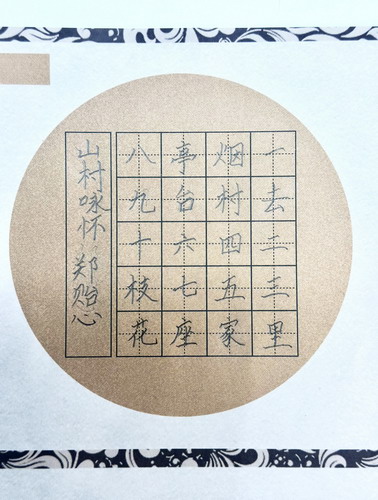 一去二三里
烟村四五家
亭台六七座
八九十枝花
山村咏怀 郑贻心